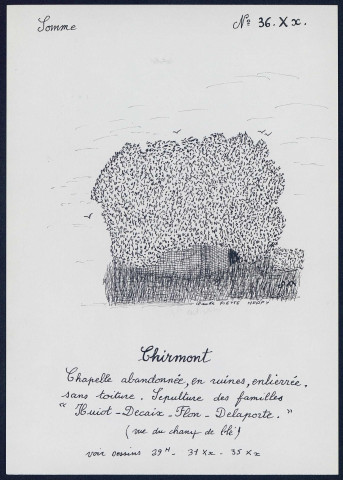 Somme
N° 36. X x.
Chirmont
Chapelle abandonnée, en ruines, entierrée.
sans toiture. Sépulture des familles
"Huiot - Decaix - Flon - Delaporte."
(vue du champ de blé)
voir dessins 29